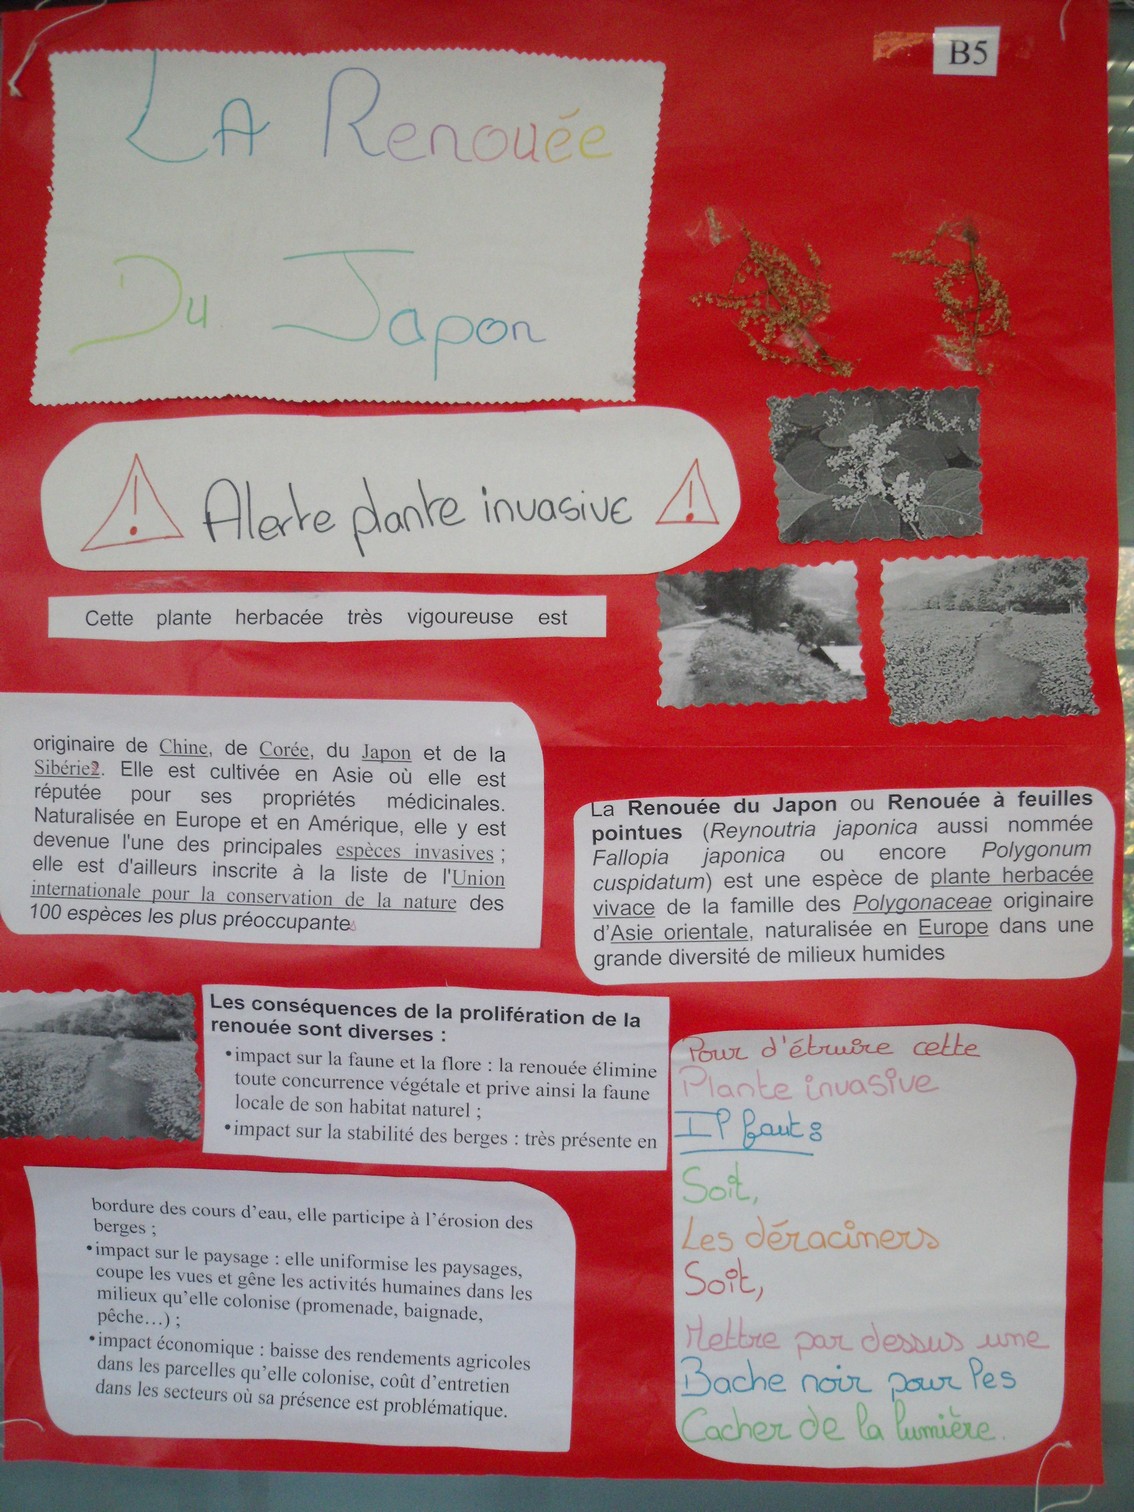 B5
LA Renouée
Du Japon
! Alerte plante invasive !
Cette plante herbacée très vigoureuse est
originaire de Chine, de Corée, du Japon et de la
Sibérie2. Elle est cultivée en Asie où elle est
réputée pour ses propriétés médicinales.
Naturalisée en Europe et en Amérique, elle y est
devenue l'une des principales espèces invasives ;
elle est d'ailleurs inscrite à la liste de l'Union
internationale pour la conservation de la nature des
100 espèces les plus préoccupante
La Renouée du Japon ou Renouée à feuilles
pointues (Reynoutria japonica aussi nommée
Fallopia japonica ou encore Polygonum
cuspidatum) est une espèce de plante herbacée
vivace de la famille des Polygonaceae originaire
d'Asie orientale, naturalisée en Europe dans une
grande diversité de milieux humides
Les conséquences de la prolifération de la
renouée sont diverses :
•impact sur la faune et la flore : la renouée élimine
toute concurrence végétale et prive ainsi la faune
locale de son habitat naturel ;
•impact sur la stabilité des berges : très présente en
bordure des cours d'eau, elle participe à l'érosion des
berges ;
•impact sur le paysage : elle uniformise les paysages,
coupe les vues et gêne les activités humaines dans les
milieux qu'elle colonise (promenade, baignade,
pêche…) ;
•impact économique : baisse des rendements agricoles
dans les parcelles qu'elle colonise, coût d'entretien
dans les secteurs où sa présence est problématique.
Pour d'étruire cette
Plante invasive
Il faut :
Soit,
Les déraciners
Soit,
Mettre par dessus une
Bache noir pour les
Cacher de la lumière.